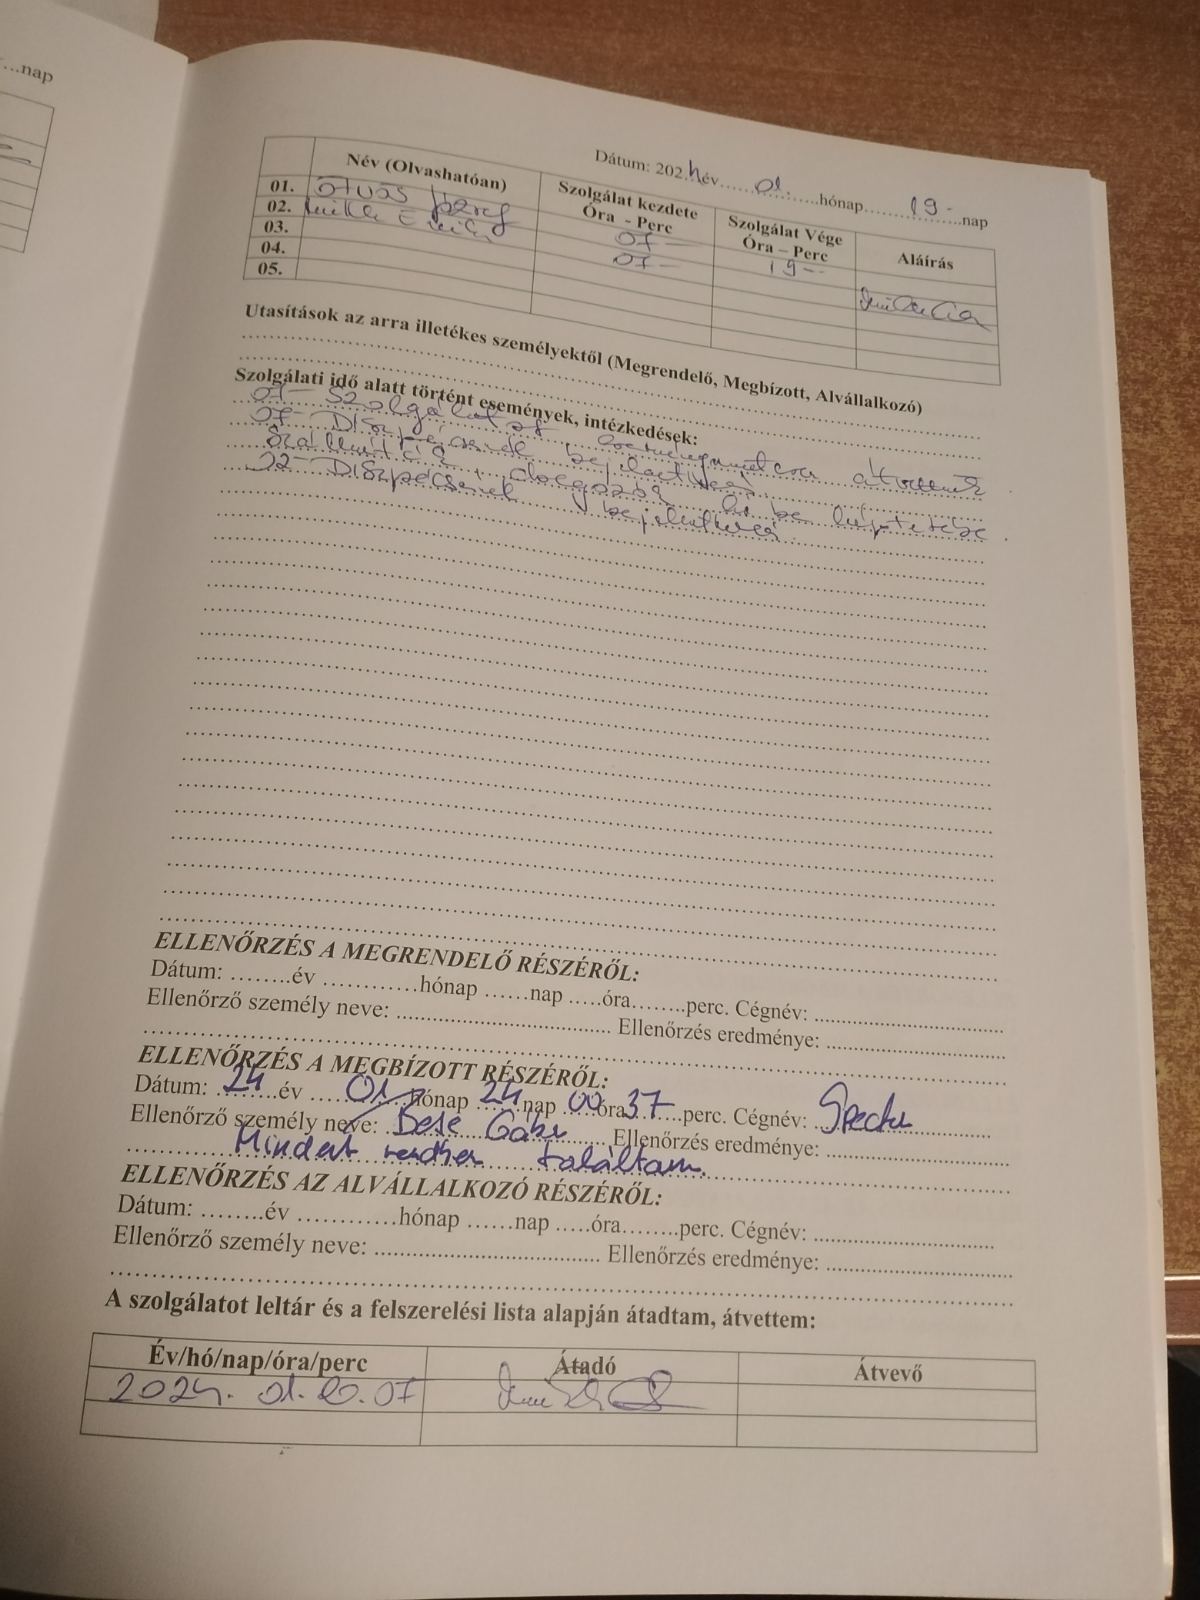 ...nap
Dátum: 2024 év 01. hónap 19- nap
Név (Olvashatóan) Szolgálat kezdete Óra - Perc Szolgálat Vége Óra – Perc Aláírás
01. Ötvös József 07 – 19 –
02. 07 –
03.
04.
05.
Utasítások az arra illetékes személyektől (Megrendelő, Megbízott, Alvállalkozó)
Szolgálati idő alatt történt események, intézkedések:
07 – Szolgálatot eseménymentesen
07 – Diszpécsernek bejelentkezés
ki be léptetése
Diszpécsernek bejelentkezés
ELLENŐRZÉS A MEGRENDELŐ RÉSZÉRŐL:
Dátum: ........év ............hónap ......nap .....óra........perc. Cégnév: ................................
Ellenőrző személy neve: ...................................... Ellenőrzés eredménye: ................................
ELLENŐRZÉS A MEGBÍZOTT RÉSZÉRŐL:
Dátum: 24 év 01 hónap 24 nap 00 óra 37 perc. Cégnév:
Ellenőrző személy neve: Ellenőrzés eredménye:
Mindent rendben találtam.
ELLENŐRZÉS AZ ALVÁLLALKOZÓ RÉSZÉRŐL:
Dátum: ........év ............hónap ......nap .....óra........perc. Cégnév: ................................
Ellenőrző személy neve: ...................................... Ellenőrzés eredménye: ................................
A szolgálatot leltár és a felszerelési lista alapján átadtam, átvettem:
Év/hó/nap/óra/perc Átadó Átvevő
2024. 01. 20. 07